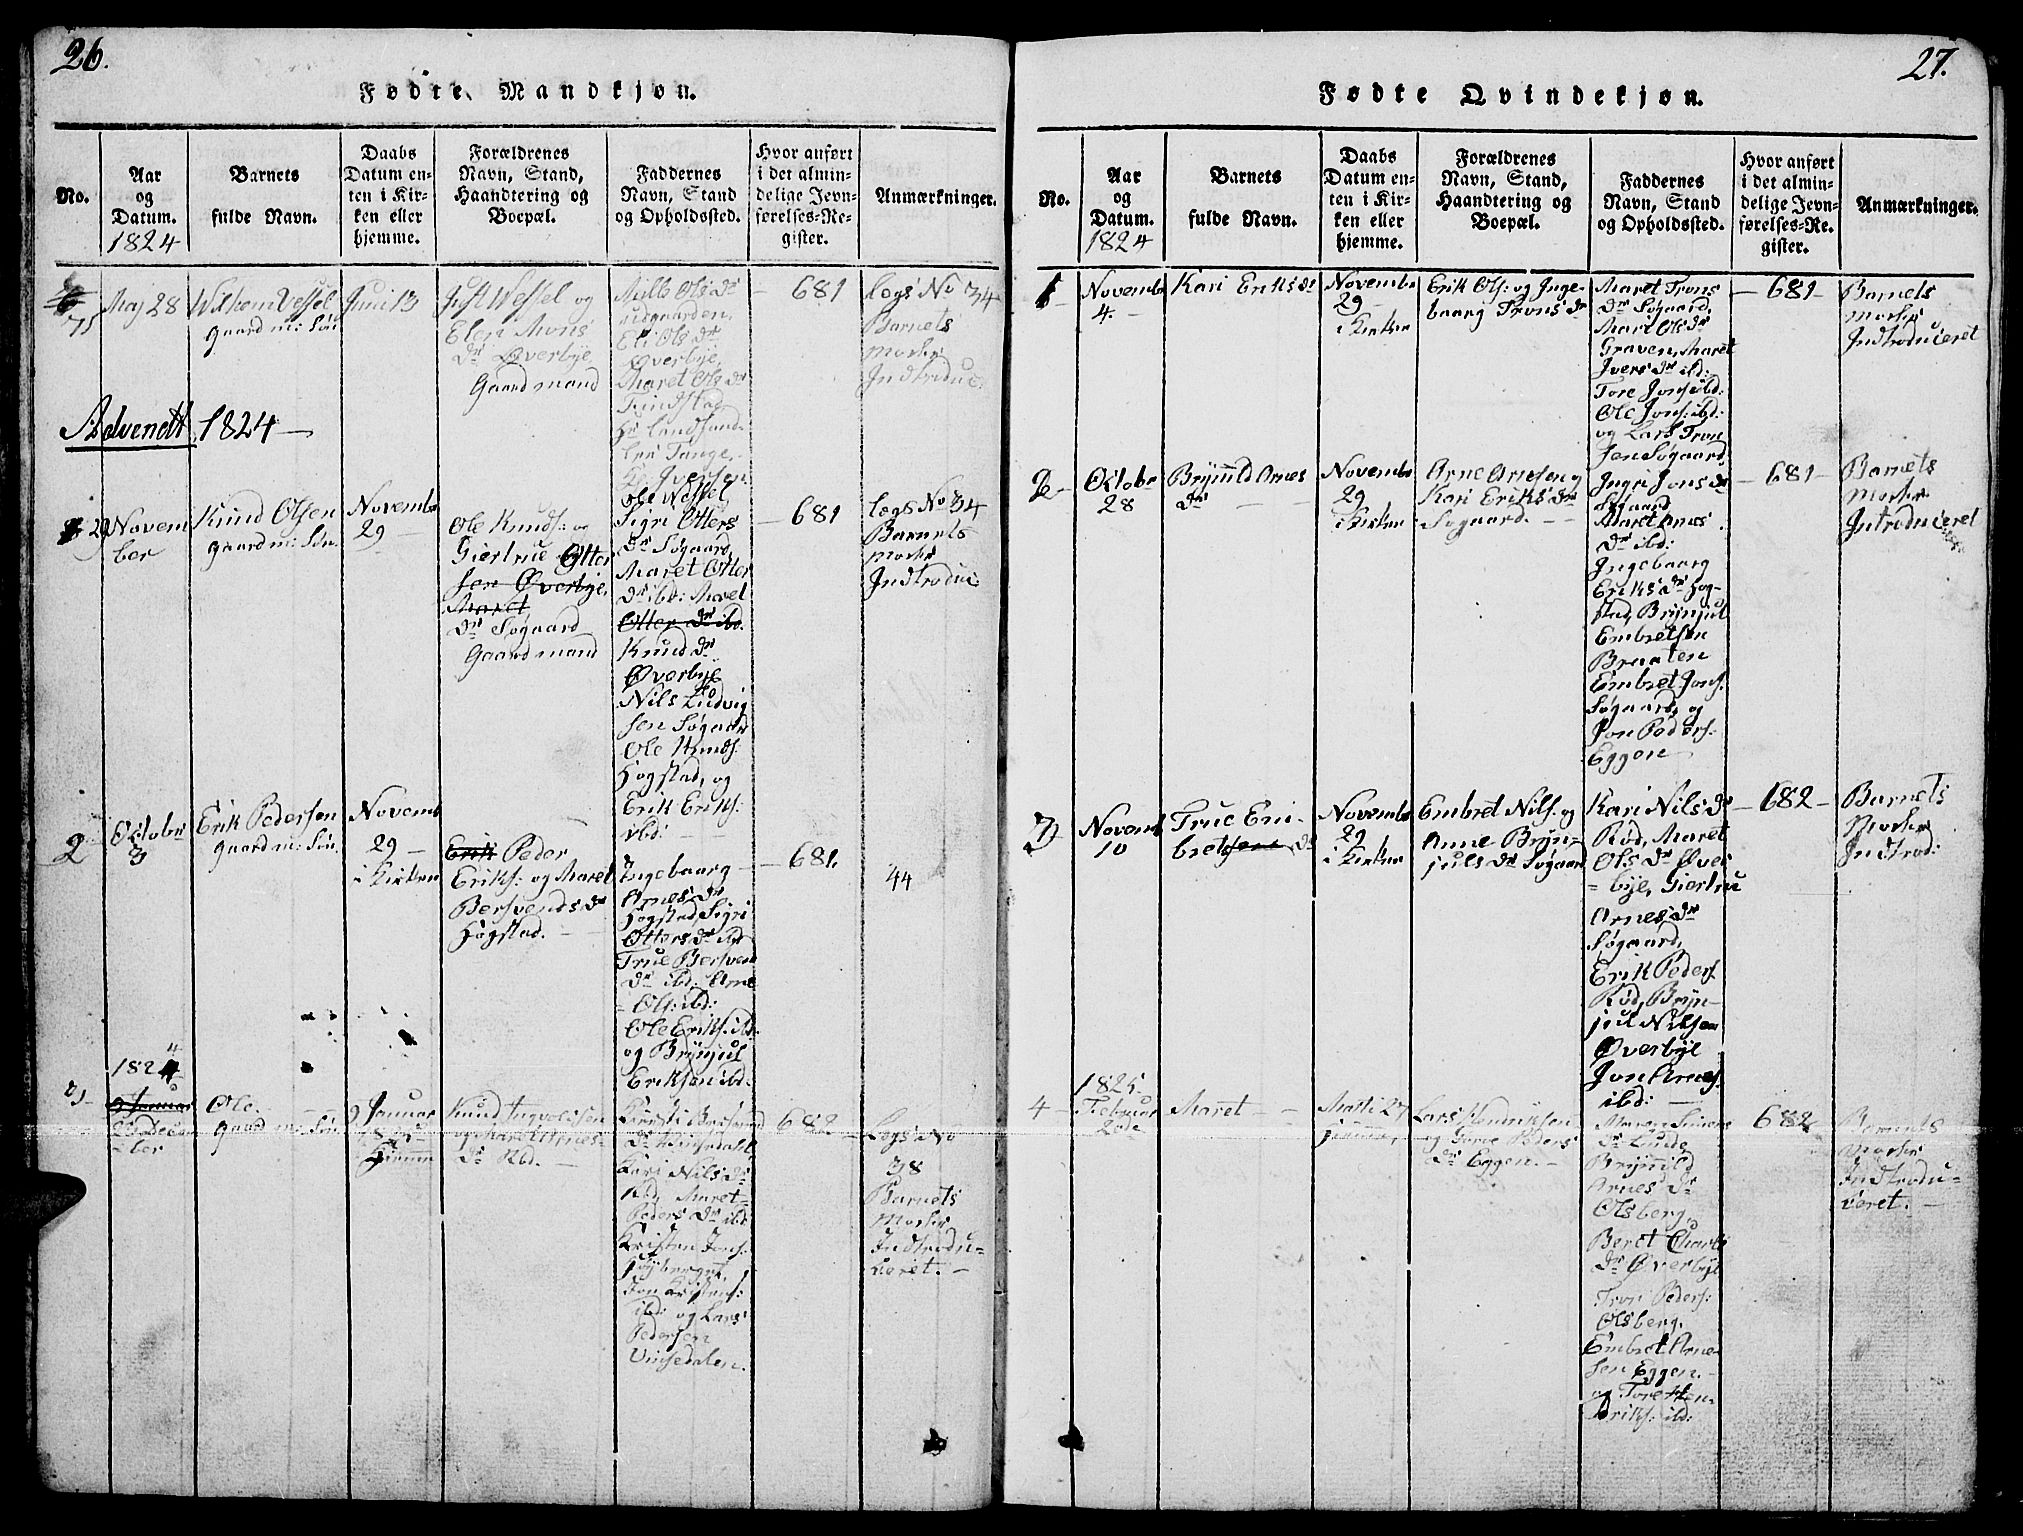 26.
Fødte Mandkjøn.
No.
Aar
og
Datum.
1824
Barnets
fulde Navn.
Daabs
Datum en-
ten i Kir-
ken eller
hjemme.
Forældrenes
Navn, Stand,
Haandtering og
Boepæl.
Faddernes
Navn, Stand
og Opholdssted.
Hvor anført
i det almin-
delige Jevn-
førelses-Re-
gister.
Anmærkninger.
Maj 28
Wilhem Vessel
Gaardm: Søn
Juni 13
Just Wessel og
Elen Mons
dr Øverbye
Gaardmand
Mille Ols dr
Eli Ols dr
Øverbye,
Maret Ols dr
Tange,
Iversen
Ole Wessel
681
Logs No 34
Barnets
Moder
Indtroduc.
Advendt 1824
29 Novem
ber
Knud Olsen
Gaardm: Søn
Novembr
29
Ole Knuds: og
Giertrue Otter
sen Øverbye,
Maret
dr Søgaard
Gaardmand
Sigri Otters
dr Søgaard,
Maret Otter
dr ibd: Maret
Otter dr ibd.
Knud dr
Øverbye
Nils Ludvig
sen Søgaard
Ole Knuds:
Høgstad, og
Erik Eriks:
ibd:
681
Logs No 34
Barnets
Moder
Indtroduc
2
Octobr
3
Erik Pedersen
Gaardm: Søn
Novemb
29
i Kirken
Erik Peder
Eriks: og Maret
Bersvends dr
Høgstad.
Ingebaarg
Arnes dr
Høgstad, Sigri
Otters dr ibd
True Bersven
dr ibd: Arne
Ols: ibd:
Ole Eriks: ibd.
og Brynjul
Eriksen ibd.
681.
44
3
1824
9 Januar
29 Decem
ber
Ole.
Gaardm: Søn
9 Januar
Hiemme
Knud Ingvoldsen
og Maret Arnes
dr Rød.
Kirsti Bersvend
dr
Kari Nils dr
Rød, Maret
Peders dr ibd
Kristen Jons:
Jon Kristens:
ibd: og Lars
Pedersen
Vinsedalen.
682
Logs No
38
Barnets
Moder
Indtrodu-
ceret.
27.
Fødte Qvindekjøn.
No.
Aar
og
Datum.
1824
Barnets
fulde Navn.
Daabs
Datum en-
ten i Kir-
ken eller
hjemme.
Forældrenes
Navn, Stand,
Haandtering og
Boepæl.
Faddernes
Navn, Stand
og Opholdssted.
Hvor anført
i det almin-
delige Jevn-
førelses-Re-
gister.
Anmærkninger.
1
Novembr
4.
Kari Eriks dr
Novembr
29
i Kirken
Erik Ols: og Inge-
baarg Trons dr
Maret Trons
dr Søgaard,
Mari Ols dr
Graven, Maret
Ivers dr ibd:
Tore Jons: ibd:
Ole Jons: ibd:
og Lars Tron
sen Søgaard
681
Barnets
Moder
Indtroduceret
2
Octobr
28
Brynild Arnes
dr
Novembr
29
i Kirken
Arne Arnesen og
Kari Eriks dr
Søgaard.
Ingri Jons dr
Søgaard
Maret Arnes
dr ibd:
Ingebaarg
Eriks dr Høg-
stad, Brynjul
Embretsen
Braaten
Embret Jons:
Søgaard, og
Jon Peders:
Eggen
681
Barnets
Moder
Introduceret
3
Novemb
10
True Em-
bretsen dr
Novembr
29
i Kirken
Embret Nils: og
Anne Bryn-
juls dr Søgaard
Kari Nils dr
Rød, Maret
Ols dr Øver
bye, Giertru
Arnes dr
Søgaard,
Erik Peders
Rød, Bryn-
jul Nilsen
Øverbye
Jon Arnes:
ibd:
682
Barnets
Moder
Indtrod:
4
1825
Februar
20de
Maret
Marti 27
hjemme
Lars Hendriksen
og Gore Peders
dr Eggen.
Maren Simens
dr Lunde
Brynild
Arnes dr
Olsberg,
Beret Charls
dr Øverbye
Tron Peders:
Olsberg,
Embret Arne
sen Eggen.
og Tore Hen-
driks: ibd:
682
Barnets
Moder
Indtrodu-
ceret.